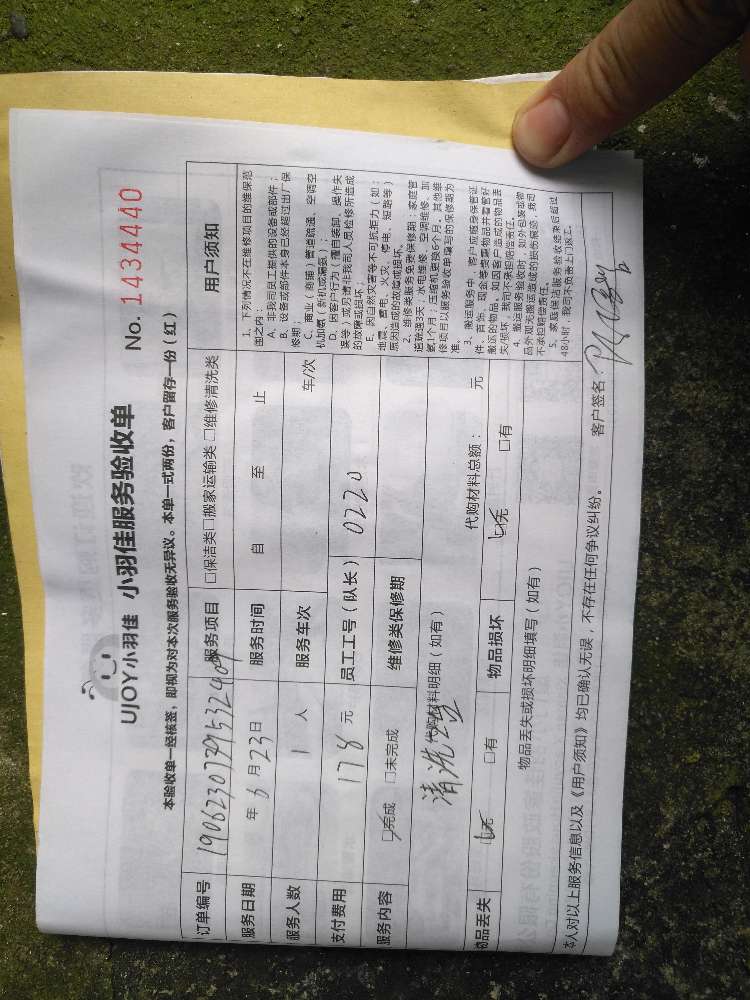 UJOY小羽佳 小羽佳服务验收单 No. 1434440
本验收单一经核签，即视为对本次服务验收无异议。本单一式两份，客户留存一份（红）
订单编号
服务项目 □保洁类□搬家运输类 □维修清洗类
服务日期 年 6 月 23 日 服务时间 自 至 止
服务人数 1 人 服务车次 车/次
支付费用 178 元 员工工号（队长） 0220
服务内容 □完成 □未完成 维修类保修期
清洗
代购材料明细（如有） 代购材料总额： 元
物品丢失 □无 □有 物品损坏 □无 □有
物品丢失或损坏明细填写（如有）
用户须知
1、下列情况不在维修项目的维保范
围之内：
A、非我司员工提供的设备或部件；
B、设备或部件本身已经超过出厂保
修期；
C、商业（商铺）管道疏通、空调空
机加氨（新机或漏氨）；
D、因客户行为（擅自装卸、操作失
误等）或另请非我司人员检修所造成
的故障或损坏；
E、因自然灾害等不可抗拒力（如：
地震、雷电、火灾、停电、短路等）
原因造成的故障或损坏。
2、维修类服务免费保修期：家庭管
道疏通3天，水电维修、空调维修、加
氨1个月，压缩机更换6个月，其他维
修项目以服务验收单填写的保修期为
准。
3、搬运服务中，客户应随身保管证
件、首饰、现金等贵重物品并看管好
搬运的物品，如因客户造成的物品丢
失/损坏，我司不承担赔偿责任。
4、搬运服务验收时，如外包装或物
品外观无搬运造成的损伤痕迹，我司
不承担赔偿责任。
5、家庭保洁服务验收结束后超过
48小时，我司不负责上门返工。
本人对以上服务信息以及《用户须知》均已确认无误，不存在任何争议纠纷。 客户签名：